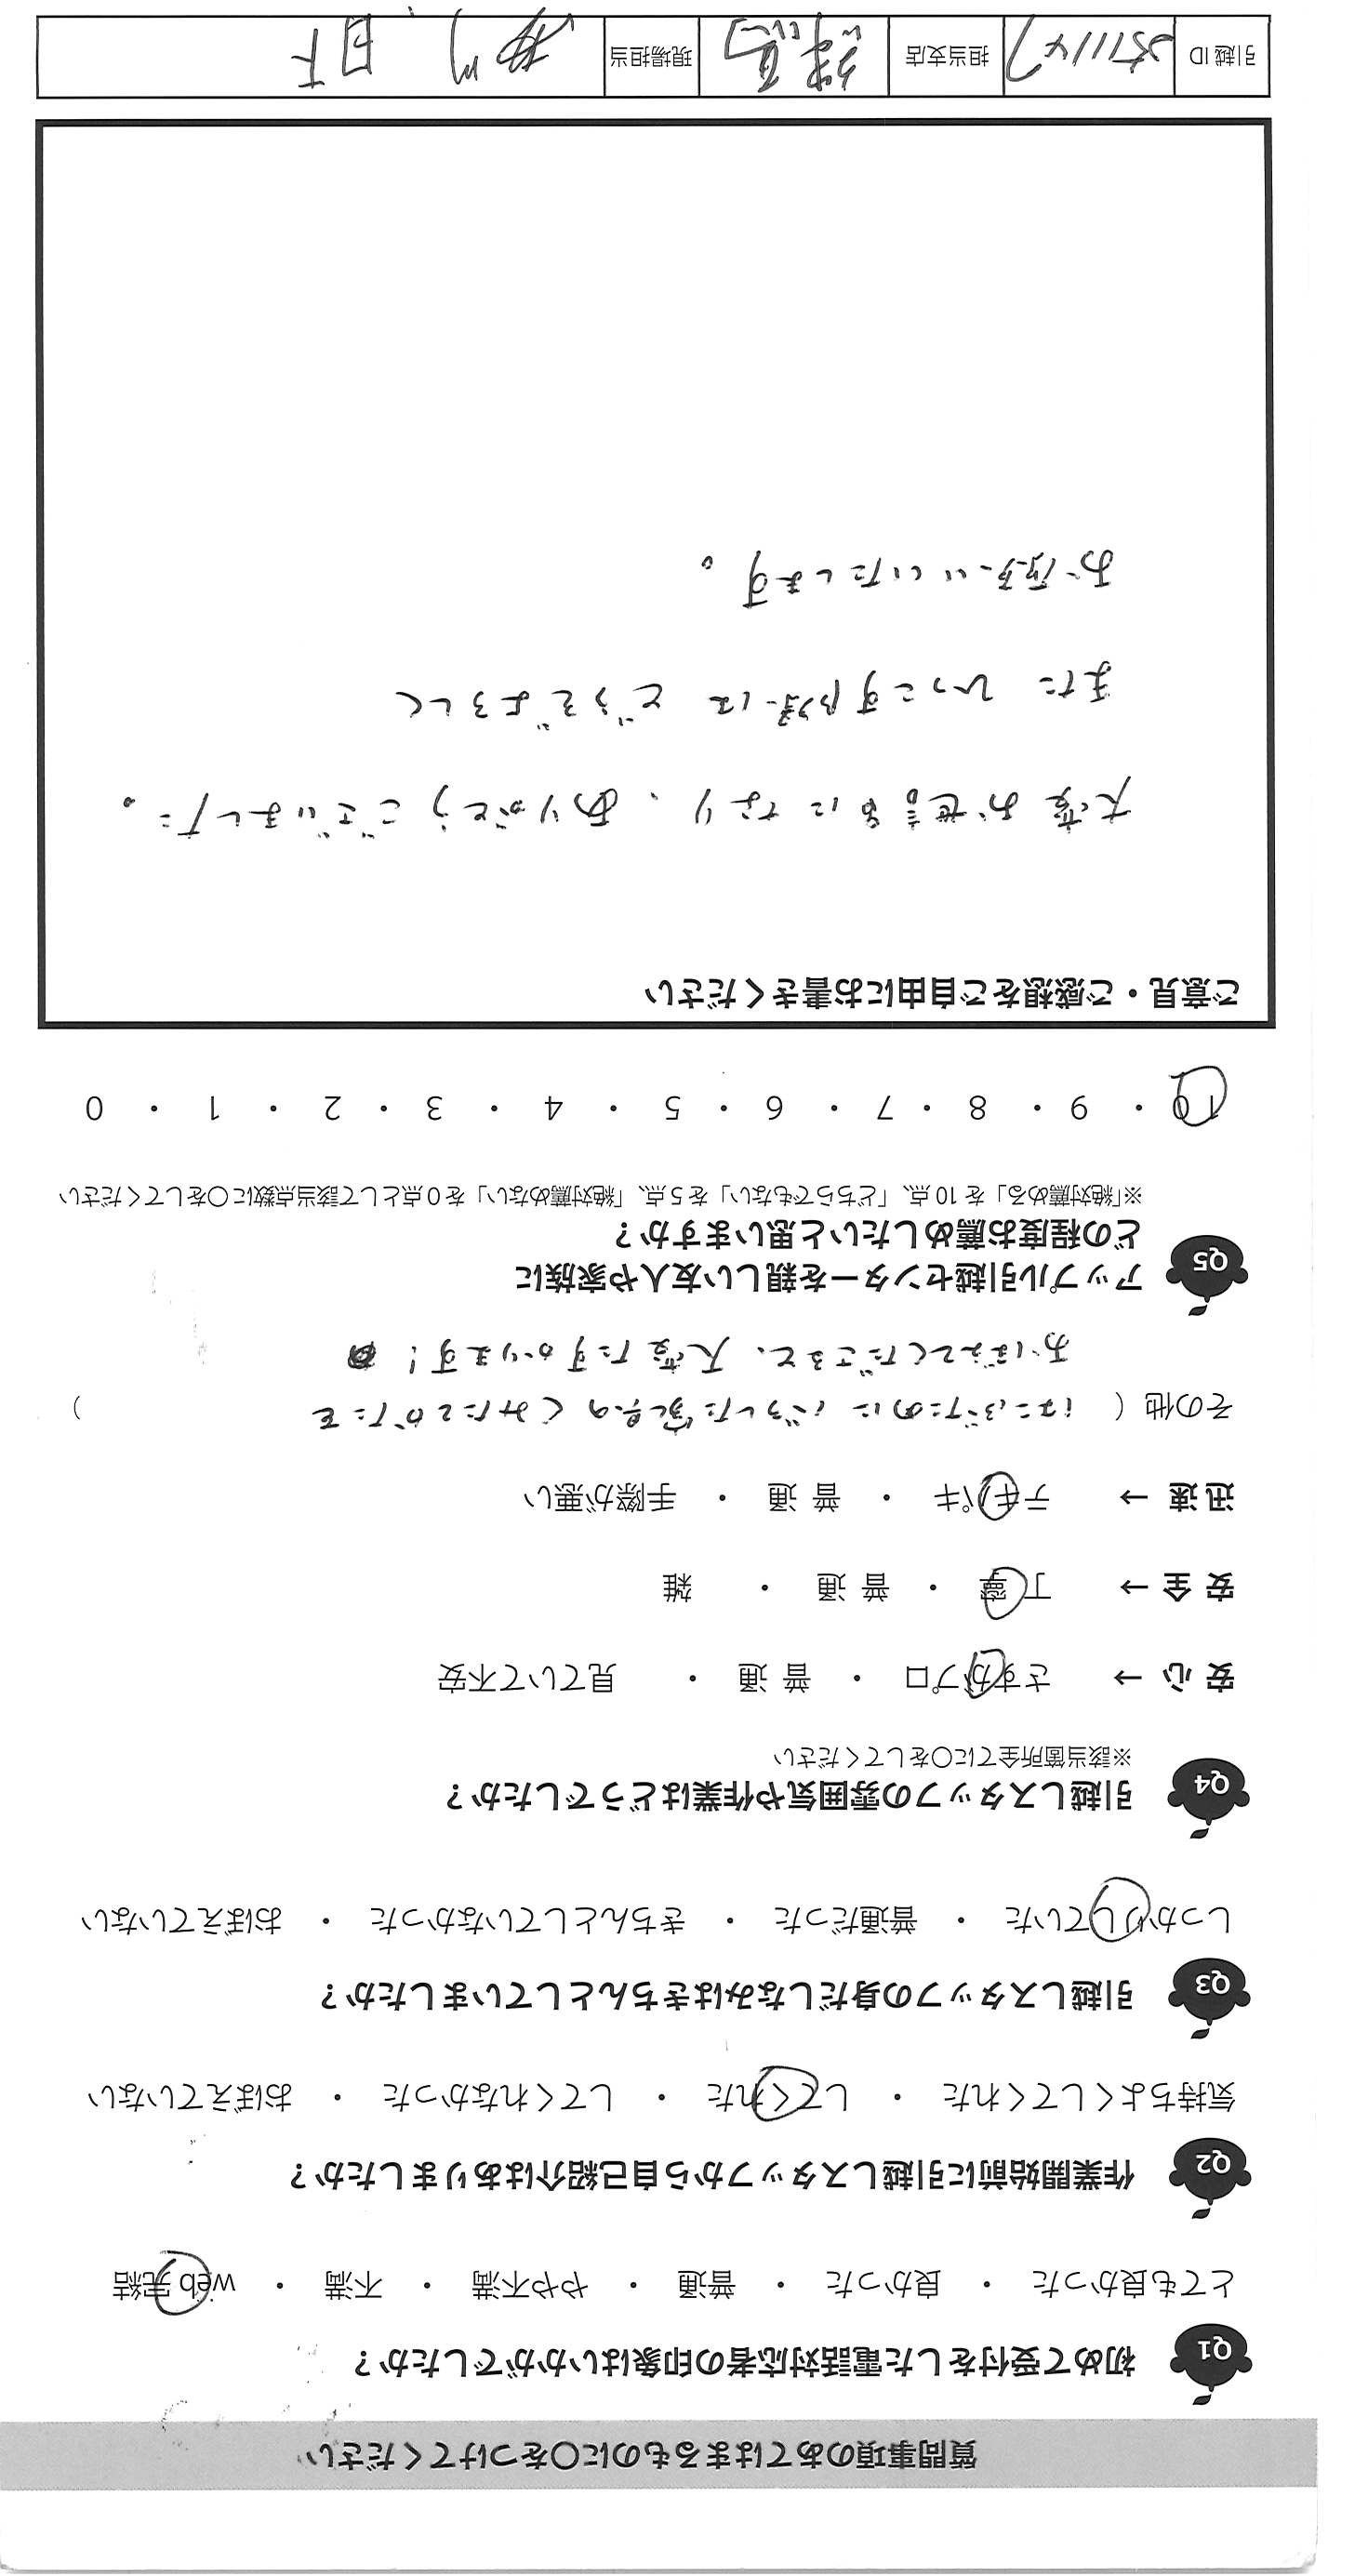 質問事項のあてはまるものに〇をつけてください
Q1 初めて受付をした電話対応者の印象はいかがでしたか？
とても良かった ・ 良かった ・ 普通 ・ やや不満 ・ 不満 ・ web 完結
Q2 作業開始前に引越しスタッフから自己紹介はありましたか？
気持ちよくしてくれた ・ してくれた ・ してくれなかった ・ おぼえていない
Q3 引越しスタッフの身だしなみはきちんとしていましたか？
しっかりしていた ・ 普通だった ・ きちんとしていなかった ・ おぼえていない
Q4 引越しスタッフの雰囲気や作業はどうでしたか？
※該当箇所全てに〇をしてください
安心 → さすがプロ ・ 普通 ・ 見ていて不安
安全 → 丁寧 ・ 普通 ・ 雑
迅速 → テキパキ ・ 普通 ・ 手際が悪い
その他 ( はこぶために バラした家具の くみたてかたを
おぼえてくださると、大変たすかります！ )
Q5 アップル引越センターを親しい友人や家族に
どの程度お薦めしたいと思いますか？
※「絶対薦める」を 10 点、「どちらでもない」を 5 点、「絶対薦めない」を 0 点として該当点数に〇をしてください
10 ・ 9 ・ 8 ・ 7 ・ 6 ・ 5 ・ 4 ・ 3 ・ 2 ・ 1 ・ 0
ご意見・ご感想をご自由にお書きください
大変お世話になり、ありがとうございました。
また ひっこす際は どうぞよろしく
お願いいたします。
引越 ID 担当支店 練馬 現場担当 日下